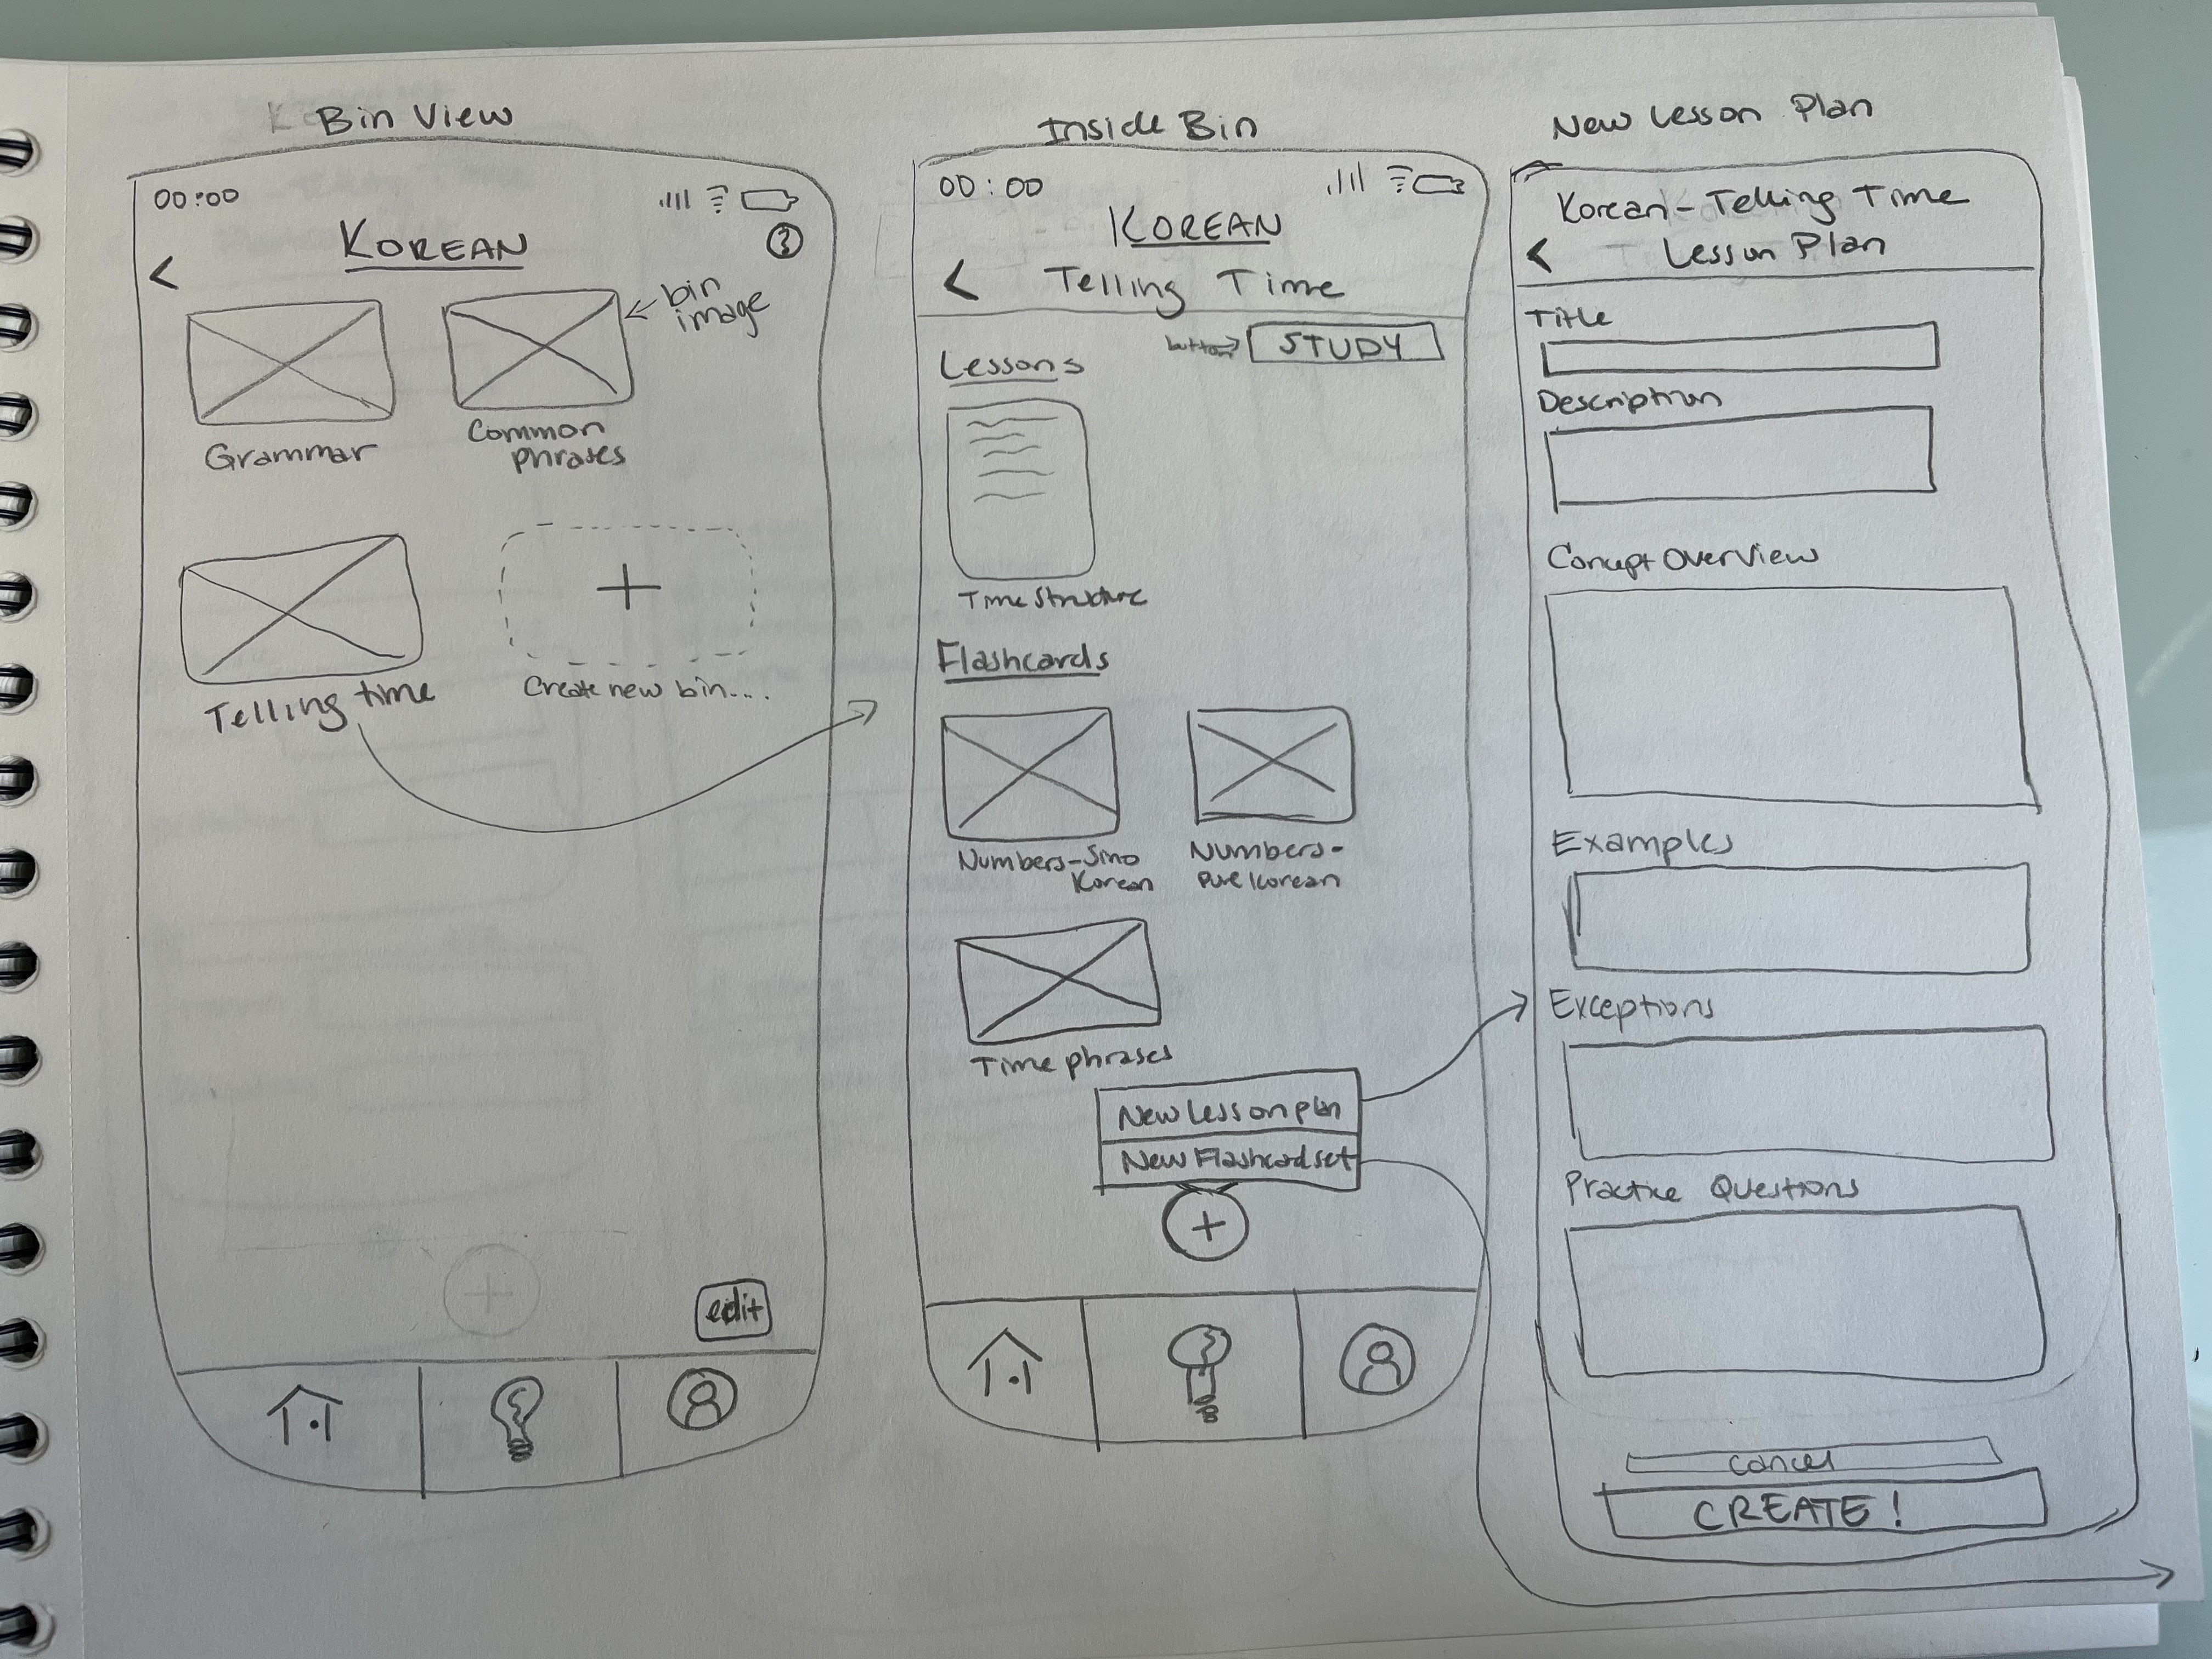 Bin View
00:00
KOREAN
<
bin
image
Grammar
Common
phrases
+
Telling time
Create new bin....
edit
Inside Bin
00:00
KOREAN
< Telling Time
button
STUDY
Lessons
Time Structure
Flashcards
Numbers-Sino
Korean
Numbers-
Pure Korean
Time phrases
New Lesson plan
New Flashcard set
+
New Lesson Plan
Korean - Telling Time
< Lesson Plan
Title
Description
Concept Overview
Examples
Exceptions
Practice Questions
cancel
CREATE!